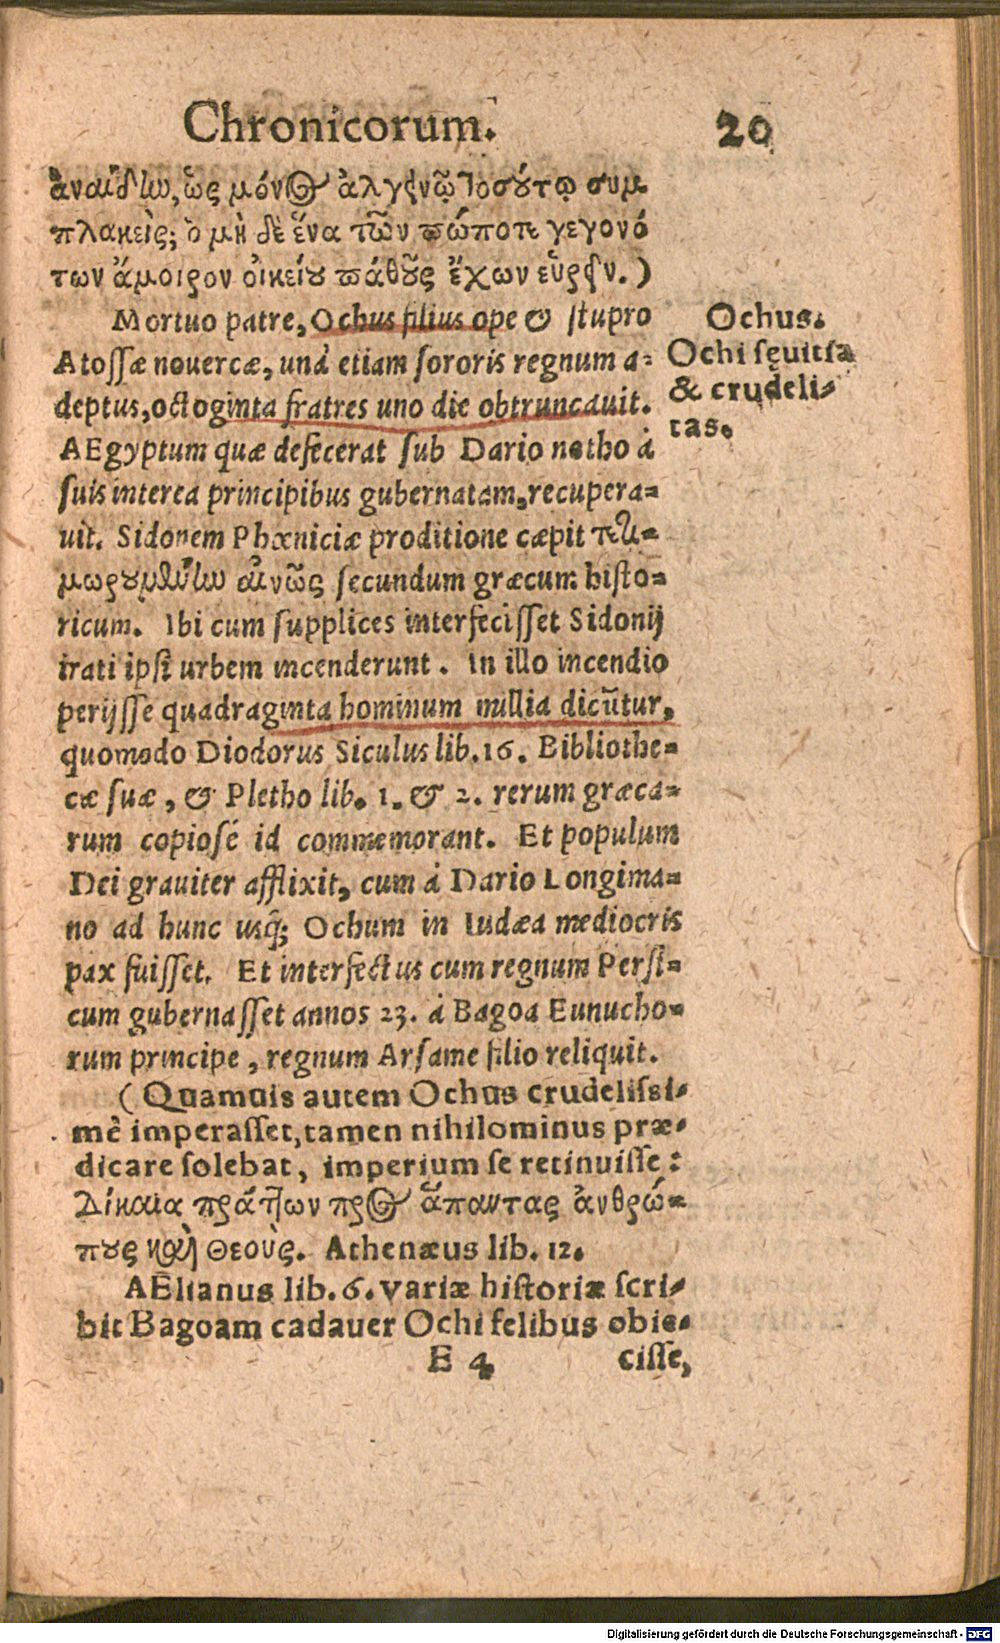 Chronicorum. 20
ἀναίδην, ὡς μόνος ἀλγεινῷ τοσούτῳ συμ
πλακεὶς; ὁ μὴ δὲ ἕνα τῶν πώποτε γεγονό
των ἄμοιρον οἰκείου πάθους ἔχων εὑρεῖν.)
Mortuo patre, Ochus filius ope & stupro
Atossæ nouercæ, unà etiam sororis regnum a-
deptus, octoginta fratres uno die obtruncauit.
AEgyptum quæ defecerat sub Dario notho à
suis interea principibus gubernatam, recupera-
uit. Sidonem Phœniciæ proditione cæpit τετι-
μωρουμένην αἰνῶς secundum græcum histo-
ricum. Ibi cum supplices interfecisset Sidonij
irati ipsi urbem incenderunt. In illo incendio
perijsse quadraginta hominum millia dicūtur,
quomodo Diodorus Siculus lib. 16. Bibliothe-
cæ suæ, & Pletho lib. 1. & 2. rerum græca-
rum copiosé id commemorant. Et populum
Dei grauiter afflixit, cum á Dario Longima-
no ad hunc usq; Ochum in Iudæa mediocris
pax fuisset. Et interfectus cum regnum Persi-
cum gubernasset annos 23. á Bagoa Eunucho-
rum principe, regnum Arsame filio reliquit.
(Quamuis autem Ochus crudelissi-
mè imperasset, tamen nihilominus præ-
dicare solebat, imperium se retinuisse:
Δίκαια πράττων πρὸς ἅπαντας ἀνθρώ-
πους καὶ θεοὺς. Athenæus lib. 12.
AElianus lib. 6. variæ historiæ scri-
bit Bagoam cadauer Ochi felibus obie-
E 4 cisse,
Ochus.
Ochi sęuitia
& crudeli-
tas.
Digitalisierung gefördert durch die Deutsche Forschungsgemeinschaft - DFG